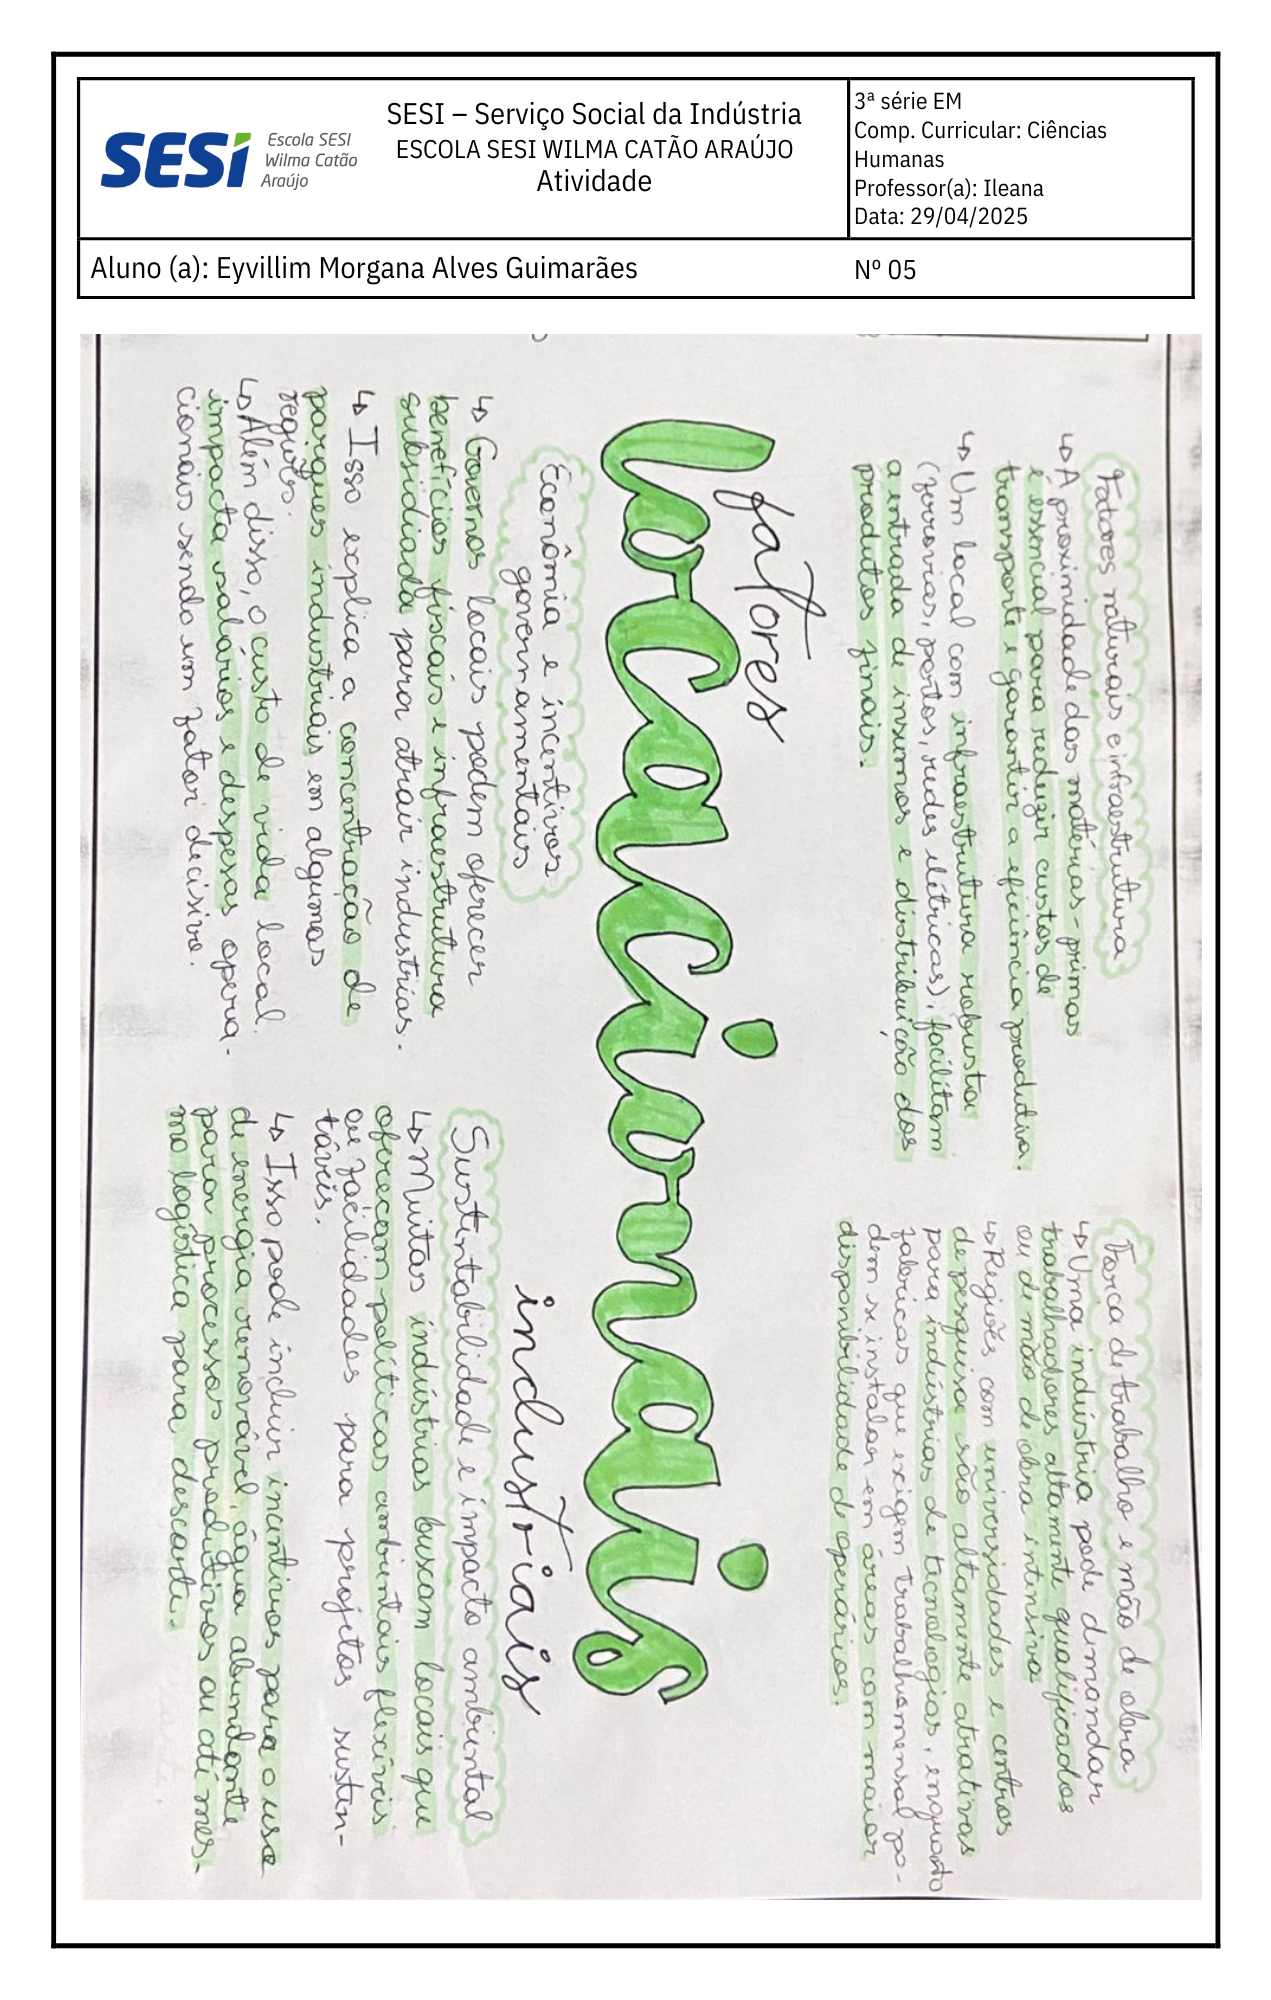 SESI
Escola SESI
Wilma Catão
Araújo
SESI – Serviço Social da Indústria
ESCOLA SESI WILMA CATÃO ARAÚJO
Atividade
3ª série EM
Comp. Curricular: Ciências
Humanas
Professor(a): Ileana
Data: 29/04/2025
Aluno (a): Eyvillim Morgana Alves Guimarães
Nº 05
Fatores naturais e infraestrutura
↳ A proximidade das matérias-primas
é essencial para reduzir custos de
transporte e garantir a eficiência produtiva.
↳ Um local com infraestrutura robusta
(ferrovias, portos, redes elétricas), facilitam
a entrada de insumos e distribuição dos
produtos finais.
Força de trabalho e mão de obra
↳ Uma indústria pode demandar
trabalhadores altamente qualificados
ou de mão de obra intensiva
↳ Regiões com universidades e centros
de pesquisa são altamente atrativas
para indústrias de tecnologias, enquanto
fabricas que exigem trabalho mensal po-
dem se instalar em áreas com maior
disponibilidade de operários.
fatores
locacionais
industriais
Econômia e incentivos
governamentais
↳ Governos locais podem oferecer
benefícios fiscais e infraestrutura
subsidiada para atrair industrias.
↳ Isso explica a concentração de
parques industriais em algumas
regiões.
↳ Além disso, o custo de vida local
impacta salários e despesas opera-
cionais sendo um fator decisivo.
Sustentabilidade e impacto ambiental
↳ Muitas indústrias buscam locais que
ofereçam políticas ambientais flexíveis
ou facilidades para projetos susten-
táveis.
↳ Isso pode incluir incentivos para o uso
de energia renovável, água abundante
para processos produtivos ou até mes-
mo logística para descarte.